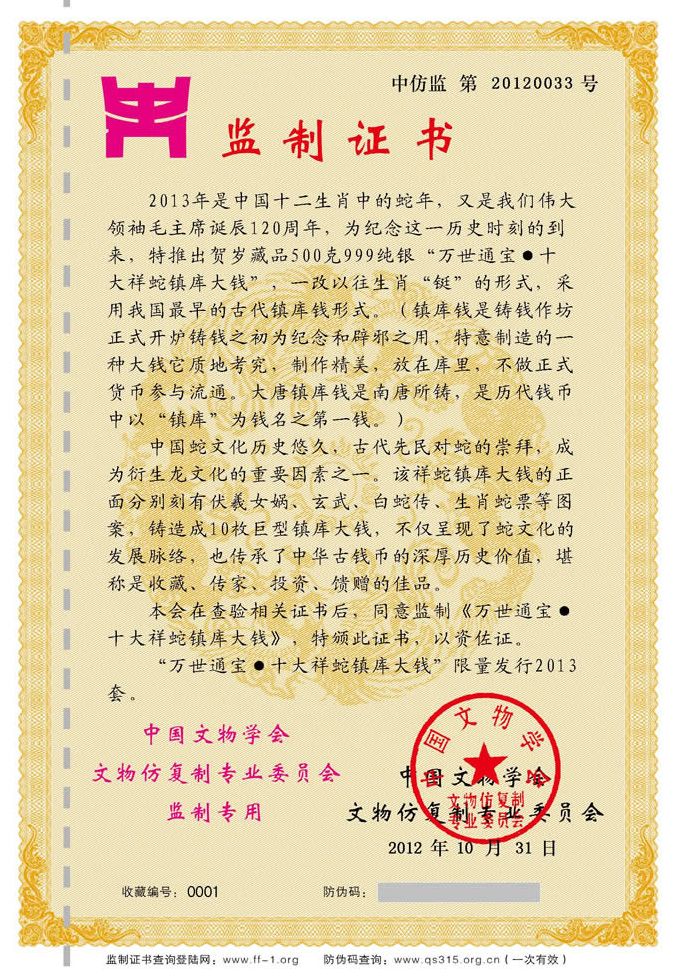 中仿监 第 20120033 号
监制证书
2013年是中国十二生肖中的蛇年，又是我们伟大
领袖毛主席诞辰120周年，为纪念这一历史时刻的到
来，特推出贺岁藏品500克999纯银“万世通宝●十
大祥蛇镇库大钱”，一改以往生肖“铤”的形式，采
用我国最早的古代镇库钱形式。（镇库钱是铸钱作坊
正式开炉铸钱之初为纪念和辟邪之用，特意制造的一
种大钱它质地考究，制作精美，放在库里，不做正式
货币参与流通。大唐镇库钱是南唐所铸，是历代钱币
中以“镇库”为钱名之第一钱。）
中国蛇文化历史悠久，古代先民对蛇的崇拜，成
为衍生龙文化的重要因素之一。该祥蛇镇库大钱的正
面分别刻有伏羲女娲、玄武、白蛇传、生肖蛇票等图
案，铸造成10枚巨型镇库大钱，不仅呈现了蛇文化的
发展脉络，也传承了中华古钱币的深厚历史价值，堪
称是收藏、传家、投资、馈赠的佳品。
本会在查验相关证书后，同意监制《万世通宝●
十大祥蛇镇库大钱》，特颁此证书，以资佐证。
“万世通宝●十大祥蛇镇库大钱”限量发行2013
套。
中国文物学会
文物仿复制专业委员会
监制专用
中国文物学会
文物仿复制
专业委员会
中国文物学会
文物仿复制专业委员会
2012 年 10 月 31 日
收藏编号：0001
防伪码：
监制证书查询登陆网：www.ff-1.org
防伪码查询：www.qs315.org.cn（一次有效）